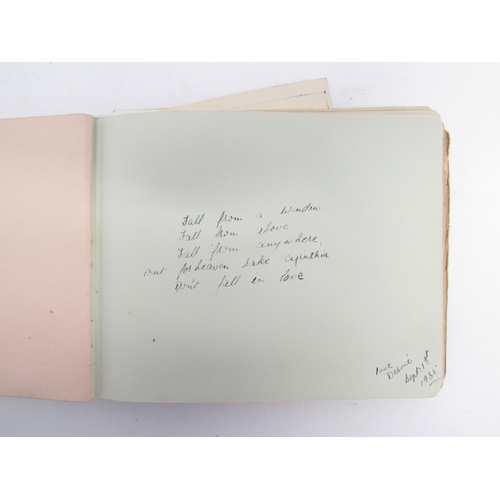 Fall from a window
Fall from above
Fall from anywhere,
But for heaven sake Cynthia
Don't fall in love
Sept 1st
1935